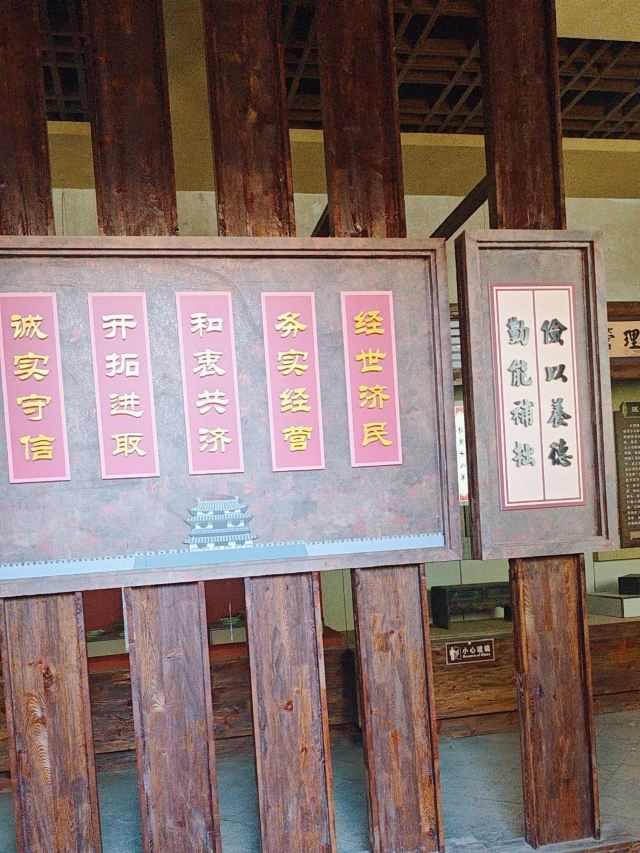 儉以養德
勤能補拙
经世济民
务实经营
和衷共济
开拓进取
诚实守信
管理
小心玻璃
Beware of Glass